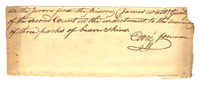 We the Jurors find the prisoner James is not guilty
of the second Count in the indictment to the amount
of three packs of beaver skins
foreman